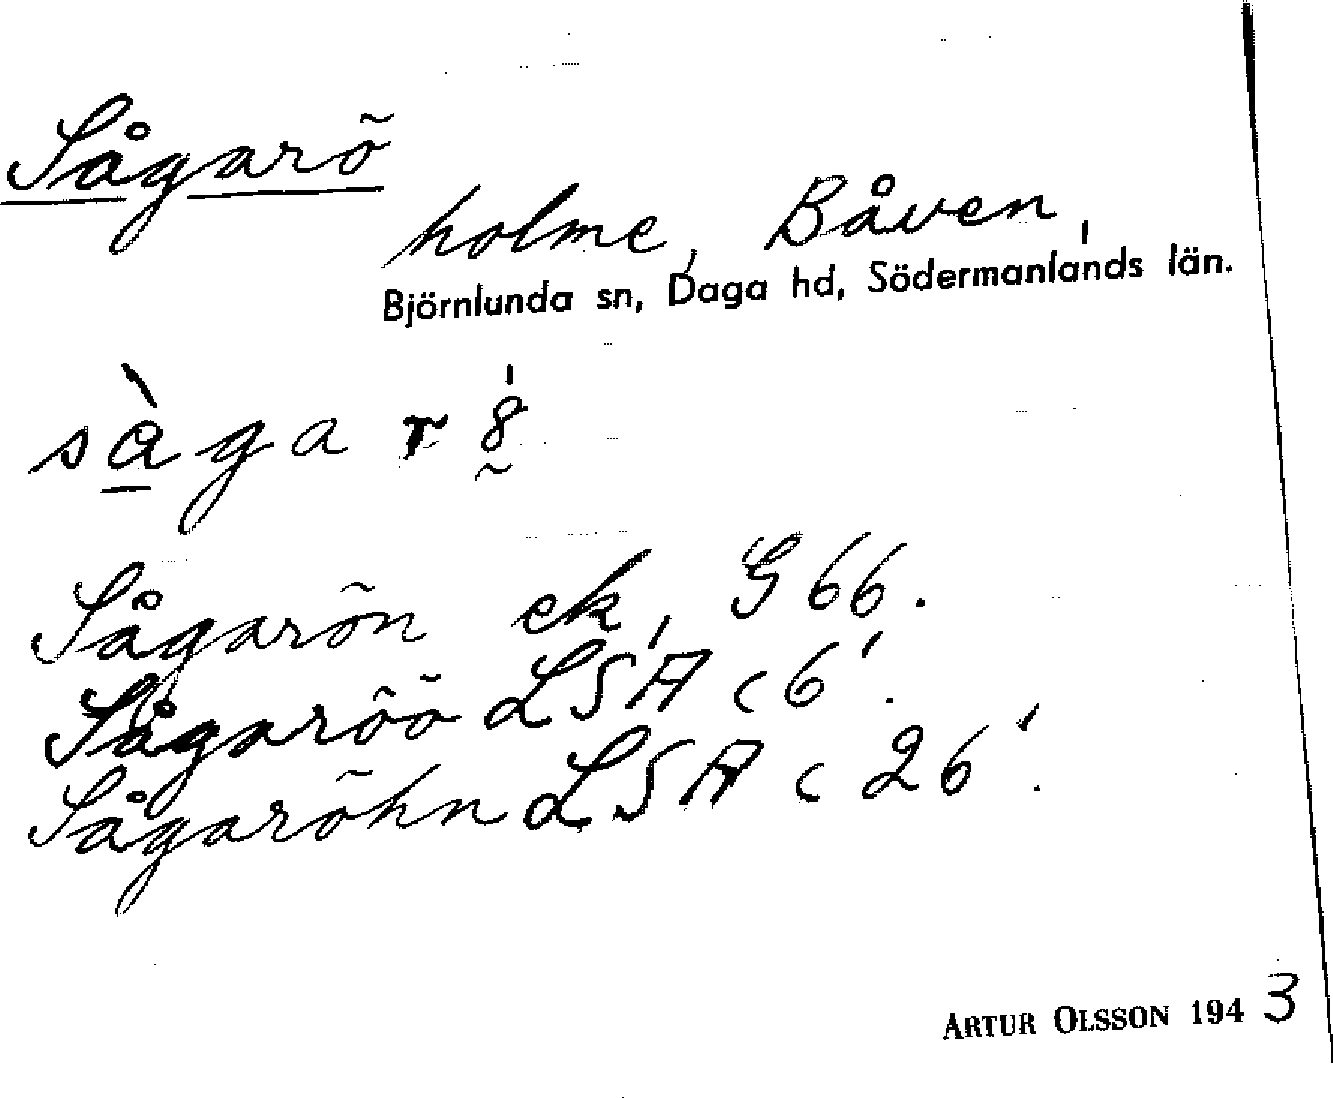 Sågarö
holme, Båven,
Björnlunda sn, Daga hd, Södermanlands län.
Sågarön ek, G 66.
Sågaröö LSA c 6'.
Sågaröhn LSA c 26'.
ARTUR OLSSON 1943